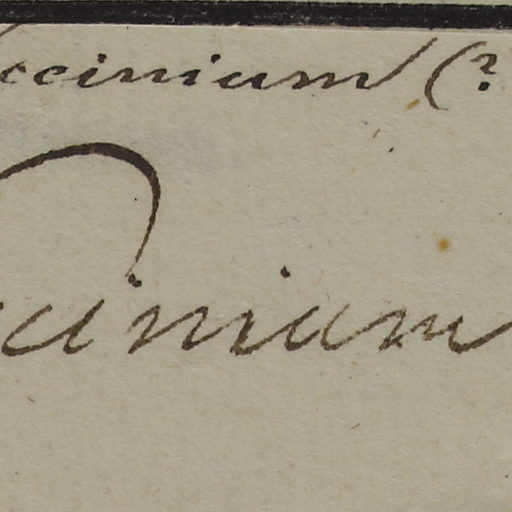 ccinium (?
cinium